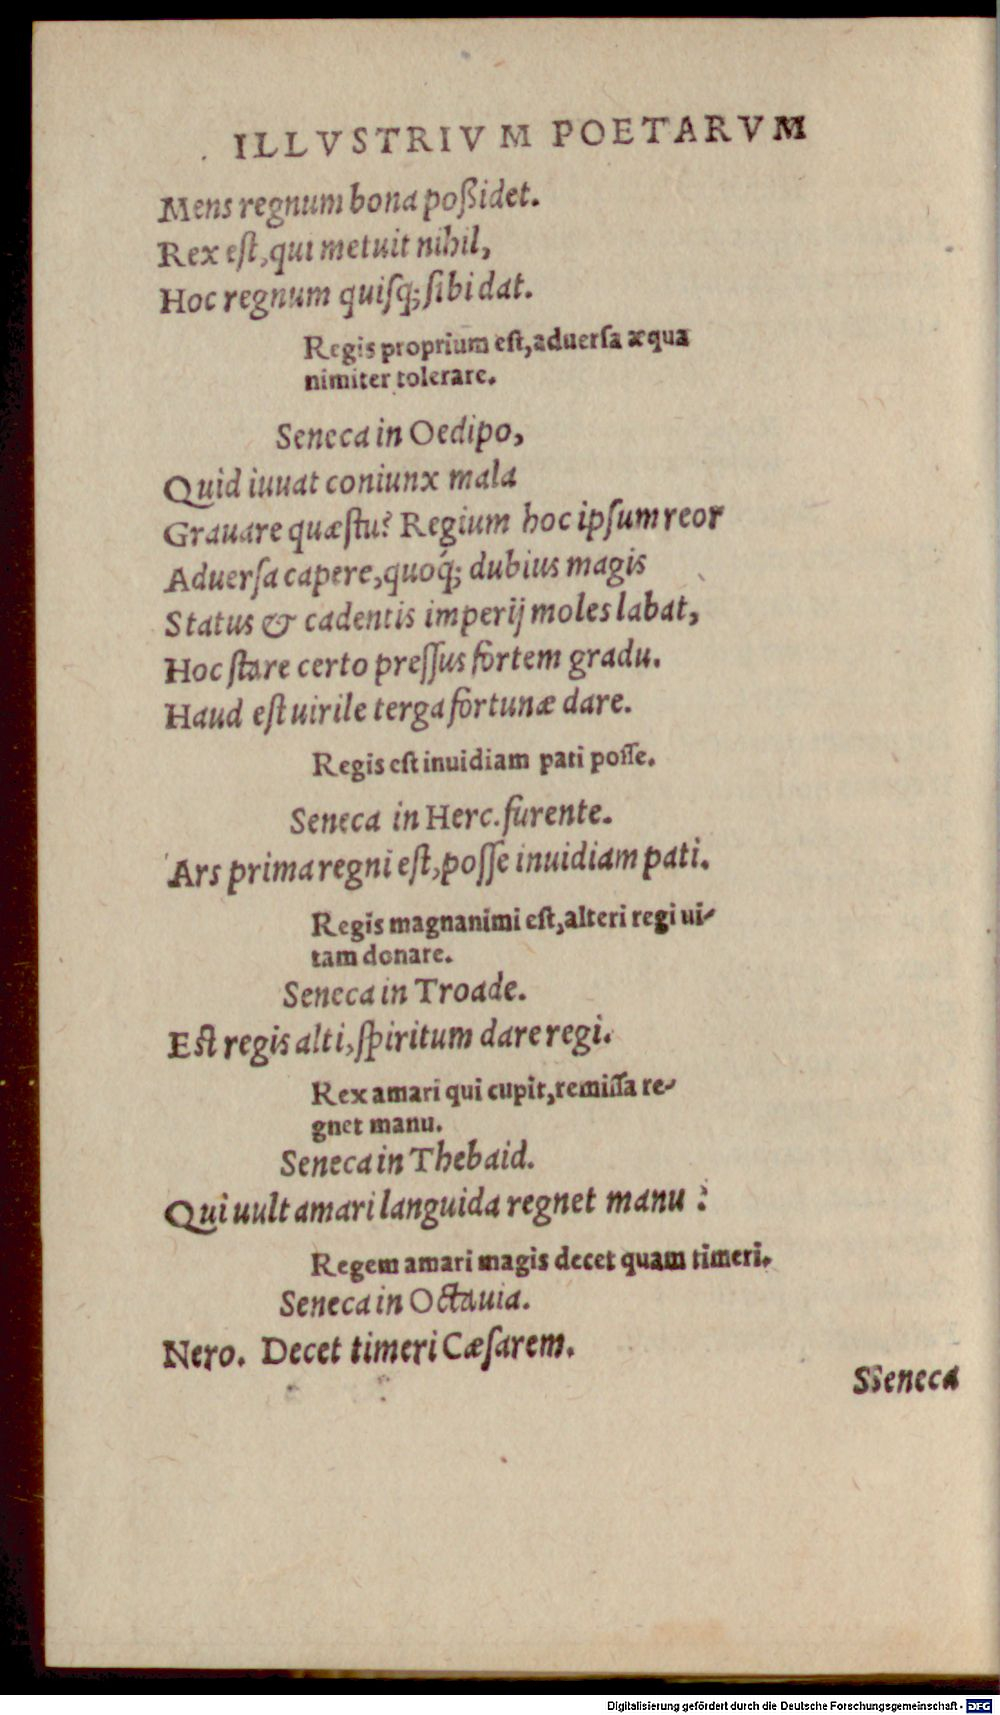 ILLVSTRIVM POETARVM
Mens regnum bona poßidet.
Rex eſt, qui metuit nihil,
Hoc regnum quiſq; ſibi dat.
Regis proprium eſt, aduerſa æqua
nimiter tolerare.
Seneca in Oedipo,
Quid iuuat coniunx mala
Grauare quæſtu? Regium hoc ipſum reor
Aduerſa capere, quoq́; dubius magis
Status & cadentis imperij moles labat,
Hoc ſtare certo preſſus fortem gradu.
Haud eſt uirile terga fortunæ dare.
Regis eſt inuidiam pati poſſe.
Seneca in Herc. furente.
Ars prima regni eſt, poſſe inuidiam pati.
Regis magnanimi eſt, alteri regi ui-
tam donare.
Seneca in Troade.
Eſt regis alti, ſpiritum dare regi.
Rex amari qui cupit, remiſſa re-
gnet manu.
Seneca in Thebaid.
Qui uult amari languida regnet manu?
Regem amari magis decet quam timeri.
Seneca in Octauia.
Nero. Decet timeri Cæſarem.
SSeneca
Digitalisierung gefördert durch die Deutsche Forschungsgemeinschaft - DFG